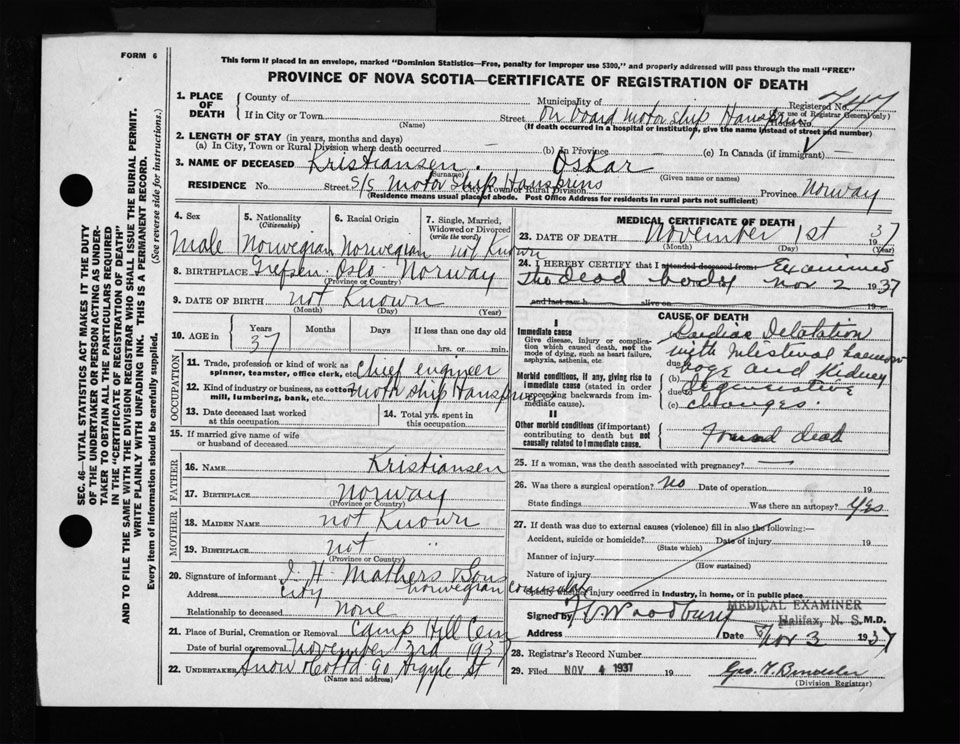 FORM 6
This form if placed in an envelope, marked "Dominion Statistics—Free, penalty for improper use $300," and properly addressed will pass through the mail "FREE"
PROVINCE OF NOVA SCOTIA—CERTIFICATE OF REGISTRATION OF DEATH
SEC. 46—VITAL STATISTICS ACT MAKES IT THE DUTY
OF THE UNDERTAKER OR PERSON ACTING AS UNDER-
TAKER TO OBTAIN ALL THE PARTICULARS REQUIRED
IN THE "CERTIFICATE OF REGISTRATION OF DEATH"
AND TO FILE THE SAME WITH THE DIVISION REGISTRAR WHO SHALL ISSUE THE BURIAL PERMIT.
WRITE PLAINLY WITH UNFADING INK. THIS IS A PERMANENT RECORD.
Every item of information should be carefully supplied. (See reverse side for instructions.)
1. PLACE OF DEATH
County of
Municipality of
Registered No. 747
(For use of Registrar General only)
If in City or Town
(Name)
Street On board motor ship Hansprins House No.
(If death occurred in a hospital or institution, give the name instead of street and number)
2. LENGTH OF STAY (in years, months and days)
(a) In City, Town or Rural Division where death occurred — (b) In Province — (c) In Canada (if immigrant) —
3. NAME OF DECEASED Kristiansen. Oskar
(Surname) (Given name or names)
RESIDENCE No. Street S/S motor ship Hansprins City, Town or Rural Division Province Norway
(Residence means usual place of abode. Post Office Address for residents in rural parts not sufficient)
4. Sex
Male
5. Nationality
(Citizenship)
Norwegian
6. Racial Origin
Norwegian
7. Single, Married, Widowed or Divorced
(write the word)
not Known
8. BIRTHPLACE Grefsen Oslo Norway
(Province or Country)
9. DATE OF BIRTH not Known
(Month) (Day) (Year)
10. AGE in
Years 37
Months
Days
If less than one day old
hrs. or min.
OCCUPATION
11. Trade, profession or kind of work as spinner, teamster, office clerk, etc. chief engineer
12. Kind of industry or business, as cotton mill, lumbering, bank, etc. motor ship Hansprins
13. Date deceased last worked at this occupation
14. Total yrs. spent in this occupation
15. If married give name of wife or husband of deceased
FATHER
16. NAME Kristiansen
17. BIRTHPLACE Norway
(Province or Country)
MOTHER
18. MAIDEN NAME not Known
19. BIRTHPLACE not "
(Province or Country)
20. Signature of informant I. H. Mathers & Son
Address City norwegian consulate
Relationship to deceased none
21. Place of Burial, Cremation or Removal Camp Hill Cem
Date of burial or removal November 3rd 1937
22. UNDERTAKER Snow & Co Ltd 90 Argyle St
(Name and address)
MEDICAL CERTIFICATE OF DEATH
23. DATE OF DEATH November 1st 1937
(Month) (Day) (Year)
24. I HEREBY CERTIFY that I attended deceased from Examined
The dead body Nov 2 1937
and last saw h alive on 19
CAUSE OF DEATH
I
Immediate cause
Give disease, injury or complication which caused death, not the mode of dying, such as heart failure, asphyxia, asthenia, etc.
Morbid conditions, if any, giving rise to immediate cause (stated in order proceeding backwards from immediate cause).
II
Other morbid conditions (if important) contributing to death but not causally related to immediate cause.
(a) Cardiac Dilatation
due to with Intestinal haemorr
(b) hage and Kidney
due to degenerative
(c) changes.
Found dead
25. If a woman, was the death associated with pregnancy? —
26. Was there a surgical operation? No Date of operation 19
State findings Was there an autopsy? Yes
27. If death was due to external causes (violence) fill in also the following:—
Accident, suicide or homicide? Date of injury 19
(State which)
Manner of injury
(How sustained)
Nature of injury
Specify whether injury occurred in industry, in home, or in public place
MEDICAL EXAMINER
Halifax, N. S.
Signed by Woodbury M.D.
Address Date Nov 3 1937
28. Registrar's Record Number
29. Filed NOV 4 1937 19
(Division Registrar)